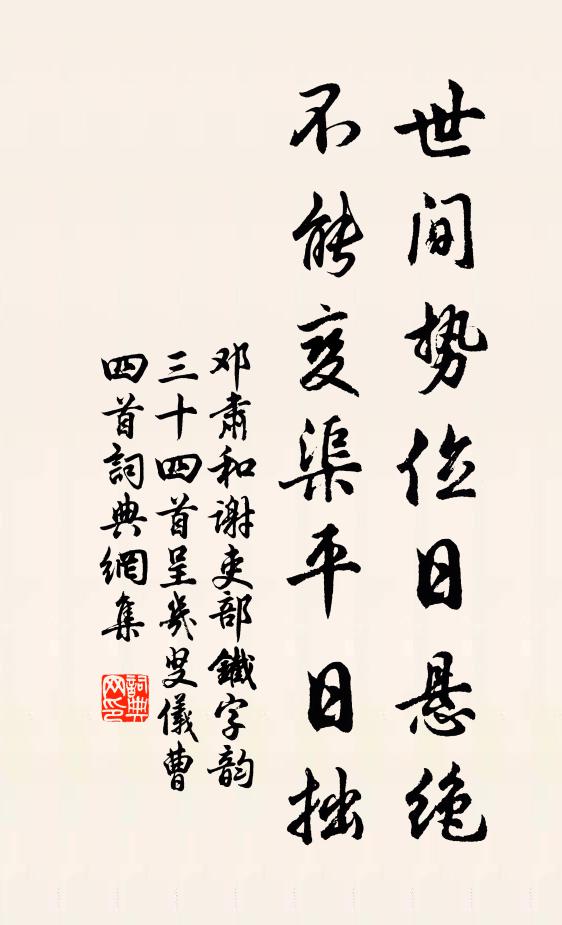 世间势位日悬绝
不能变渠平日拙
邓肃和谢吏部鐵字韵
三十四首呈幾叟儀曹
四首詞典網集
詞典网印